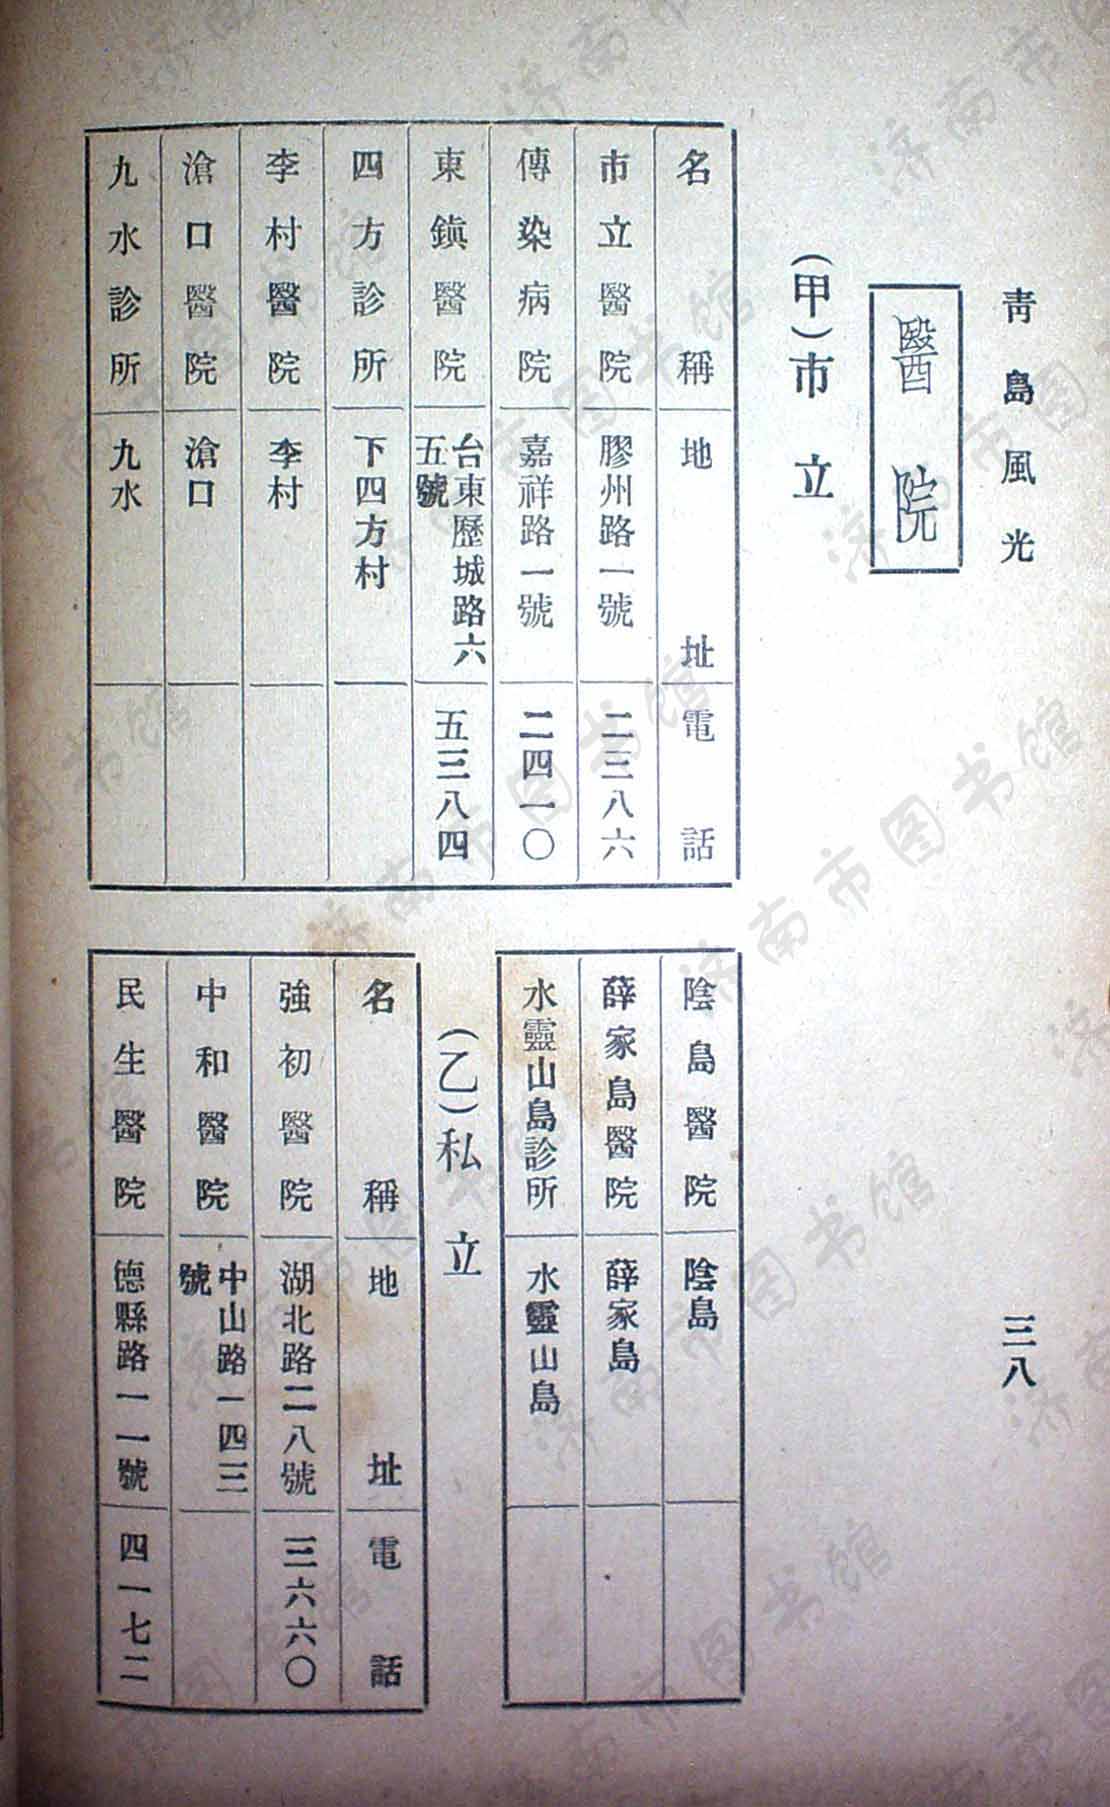 青島風光
三八
醫院
(甲)市立
名稱 地址 電話
市立醫院 膠州路一號 二三八六
傳染病院 嘉祥路一號 二四一〇
東鎮醫院 台東歷城路六五號 五三八四
四方診所 下四方村
李村醫院 李村
滄口醫院 滄口
九水診所 九水
陰島醫院 陰島
薛家島醫院 薛家島
水靈山島診所 水靈山島
(乙)私立
名稱 地址 電話
強初醫院 湖北路二八號 三六六〇
中和醫院 中山路一四三號
民生醫院 德縣路一一號 四一七二
济南市图书馆